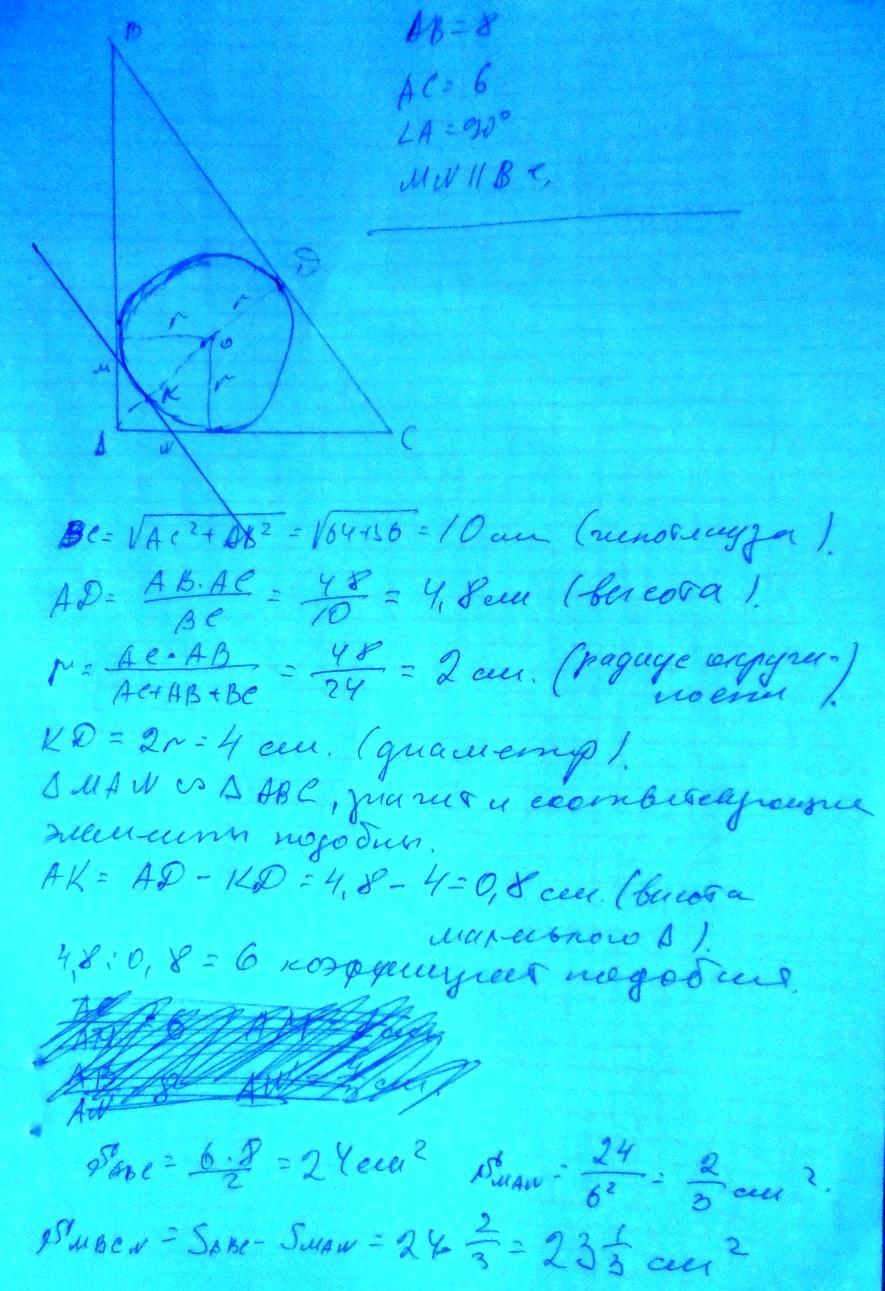 AB = 8
AC = 6
∠A = 90°
MN || BC.
B
D
r
r
O
r
M
K
A
N
C
BC = √AC² + AB² = √64+36 = 10 см (гипотенуза).
AD = AB·AC / BC = 48 / 10 = 4,8 см (высота).
r = AC·AB / AC+AB+BC = 48 / 24 = 2 см. (радиус окруж-
ности).
KD = 2r = 4 см. (диаметр).
Δ MAN ∽ Δ ABC, значит и соответствующие
элементы подобны.
AK = AD - KD = 4,8 - 4 = 0,8 см. (высота
маленького Δ).
4,8 : 0,8 = 6 коэффициент подобия.
S ABC = 6·8 / 2 = 24 см²
S MAN = 24 / 6² = 2 / 3 см².
S MBCN = S ABC - S MAN = 24 - 2/3 = 23 1/3 см²